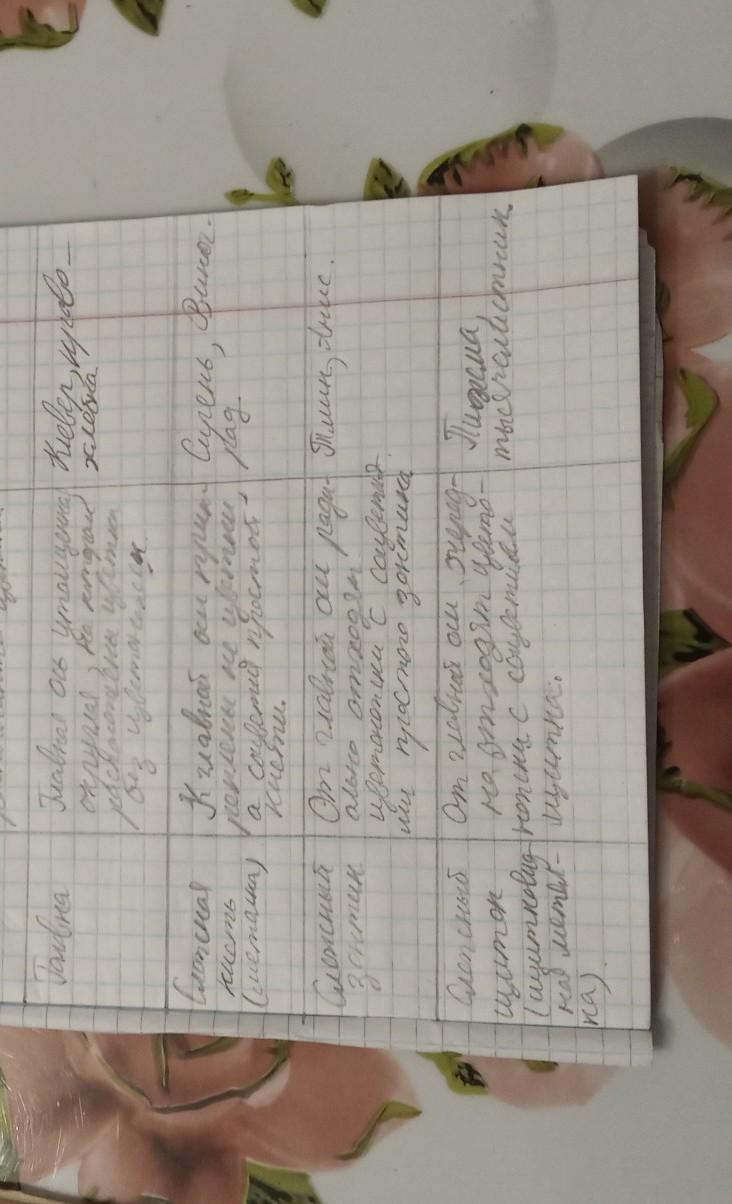 Головка
Главная ось утолщенна,
округлая, на которой
расположены цветки
без цветоножек
Клевер, крово-
хлебка
Сложная
кисть
(метелка)
К главной оси прик-
реплены не цветки
а соцветия простой
кисти.
Сирень, Виног-
рад
Сложный
зонтик
От главной оси ради-
ально отходят
цветоножки с соцветия-
ми простого зонтика.
Тмин, Анис.
Сложный
щиток
(щитковид-
ная метел-
ка).
От главной оси очеред-
но отходят цвето-
ножки с соцветием
щитка.
Пижма,
тысячелистник.